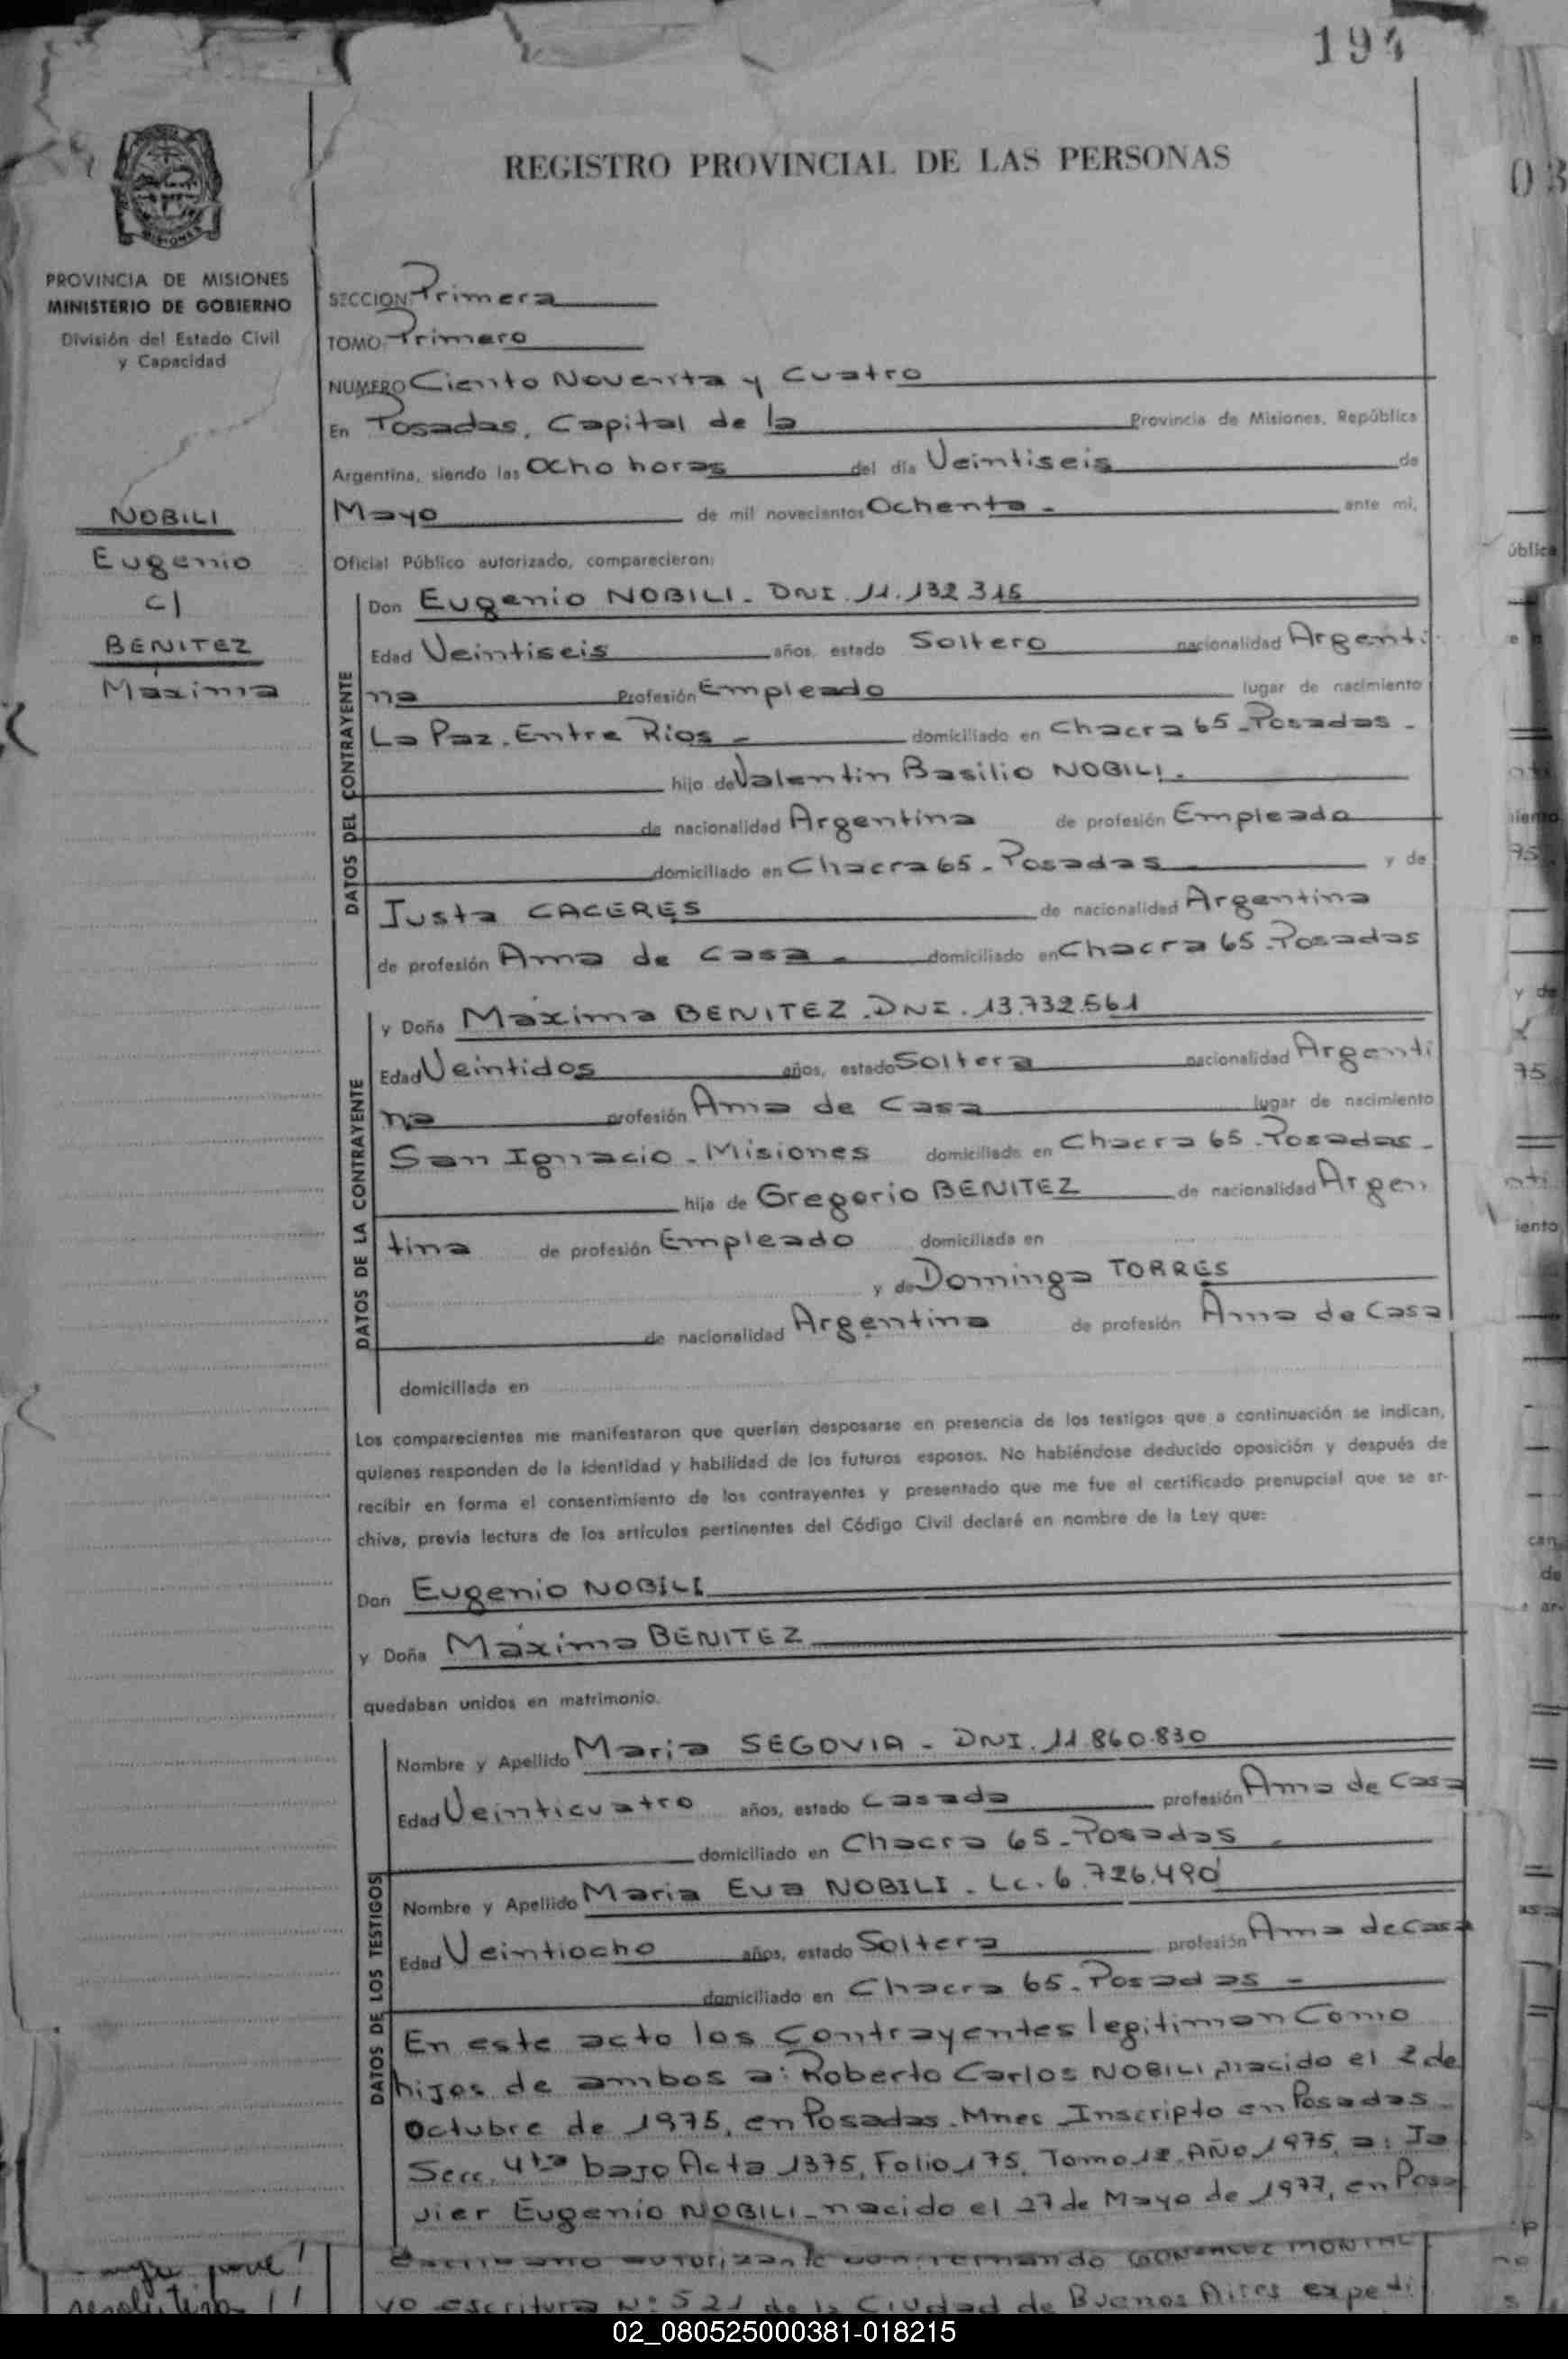 194
REGISTRO PROVINCIAL DE LAS PERSONAS
PROVINCIA DE MISIONES
MINISTERIO DE GOBIERNO
División del Estado Civil
y Capacidad
NOBILI
Eugenio
c/
BENITEZ
Máxima
SECCION Primera
TOMO Primero
NUMERO Ciento Noventa y Cuatro
En Posadas, Capital de la Provincia de Misiones, República
Argentina, siendo las Ocho horas del día Veintiseis de
Mayo de mil novecientos Ochenta - ante mi,
Oficial Público autorizado, comparecieron:
DATOS DEL CONTRAYENTE
Don Eugenio NOBILI - DNI. 11.132.315
Edad Veintiseis años, estado Soltero nacionalidad Argenti
na Profesión Empleado lugar de nacimiento
La Paz. Entre Rios - domiciliado en Chacra 65 - Posadas -
hijo de Valentin Basilio NOBILI.
de nacionalidad Argentina de profesión Empleado
domiciliado en Chacra 65 - Posadas y de
Justa CACERES de nacionalidad Argentina
de profesión Ama de Casa - domiciliado en Chacra 65 - Posadas
DATOS DE LA CONTRAYENTE
y Doña Máxima BENITEZ. DNI. 13.732.561
Edad Veintidos años, estado Soltera nacionalidad Argenti
na profesión Ama de Casa lugar de nacimiento
San Ignacio - Misiones domiciliada en Chacra 65 - Posadas -
hija de Gregorio BENITEZ de nacionalidad Argen
tina de profesión Empleado domiciliada en
y de Dominga TORRES
de nacionalidad Argentina de profesión Ama de Casa
domiciliada en
Los comparecientes me manifestaron que querían desposarse en presencia de los testigos que a continuación se indican,
quienes responden de la identidad y habilidad de los futuros esposos. No habiéndose deducido oposición y después de
recibir en forma el consentimiento de los contrayentes y presentado que me fue el certificado prenupcial que se ar-
chiva, previa lectura de los artículos pertinentes del Código Civil declaré en nombre de la Ley que:
Don Eugenio NOBILI
y Doña Máxima BENITEZ
quedaban unidos en matrimonio.
DATOS DE LOS TESTIGOS
Nombre y Apellido Maria SEGOVIA - DNI. 11.860.830
Edad Veinticuatro años, estado Casada profesión Ama de Casa
domiciliado en Chacra 65 - Posadas -
Nombre y Apellido Maria Eva NOBILI - Lc. 6.726.490
Edad Veintiocho años, estado Soltera profesión Ama de Casa
domiciliado en Chacra 65 - Posadas -
En este acto los Contrayentes legitiman Como
hijos de ambos a: Roberto Carlos NOBILI, nacido el 2 de
Octubre de 1975, en Posadas. Mnes Inscripto en Posadas
Secc. 4ta bajo Acta 1375, Folio 175, Tomo 1º Año 1975, a: Ja
vier Eugenio NOBILI - nacido el 27 de Mayo de 1977, en Posa
autorizante
yo escritura Nº 521 de la Ciudad de Buenos Aires expedi
02_080525000381-018215